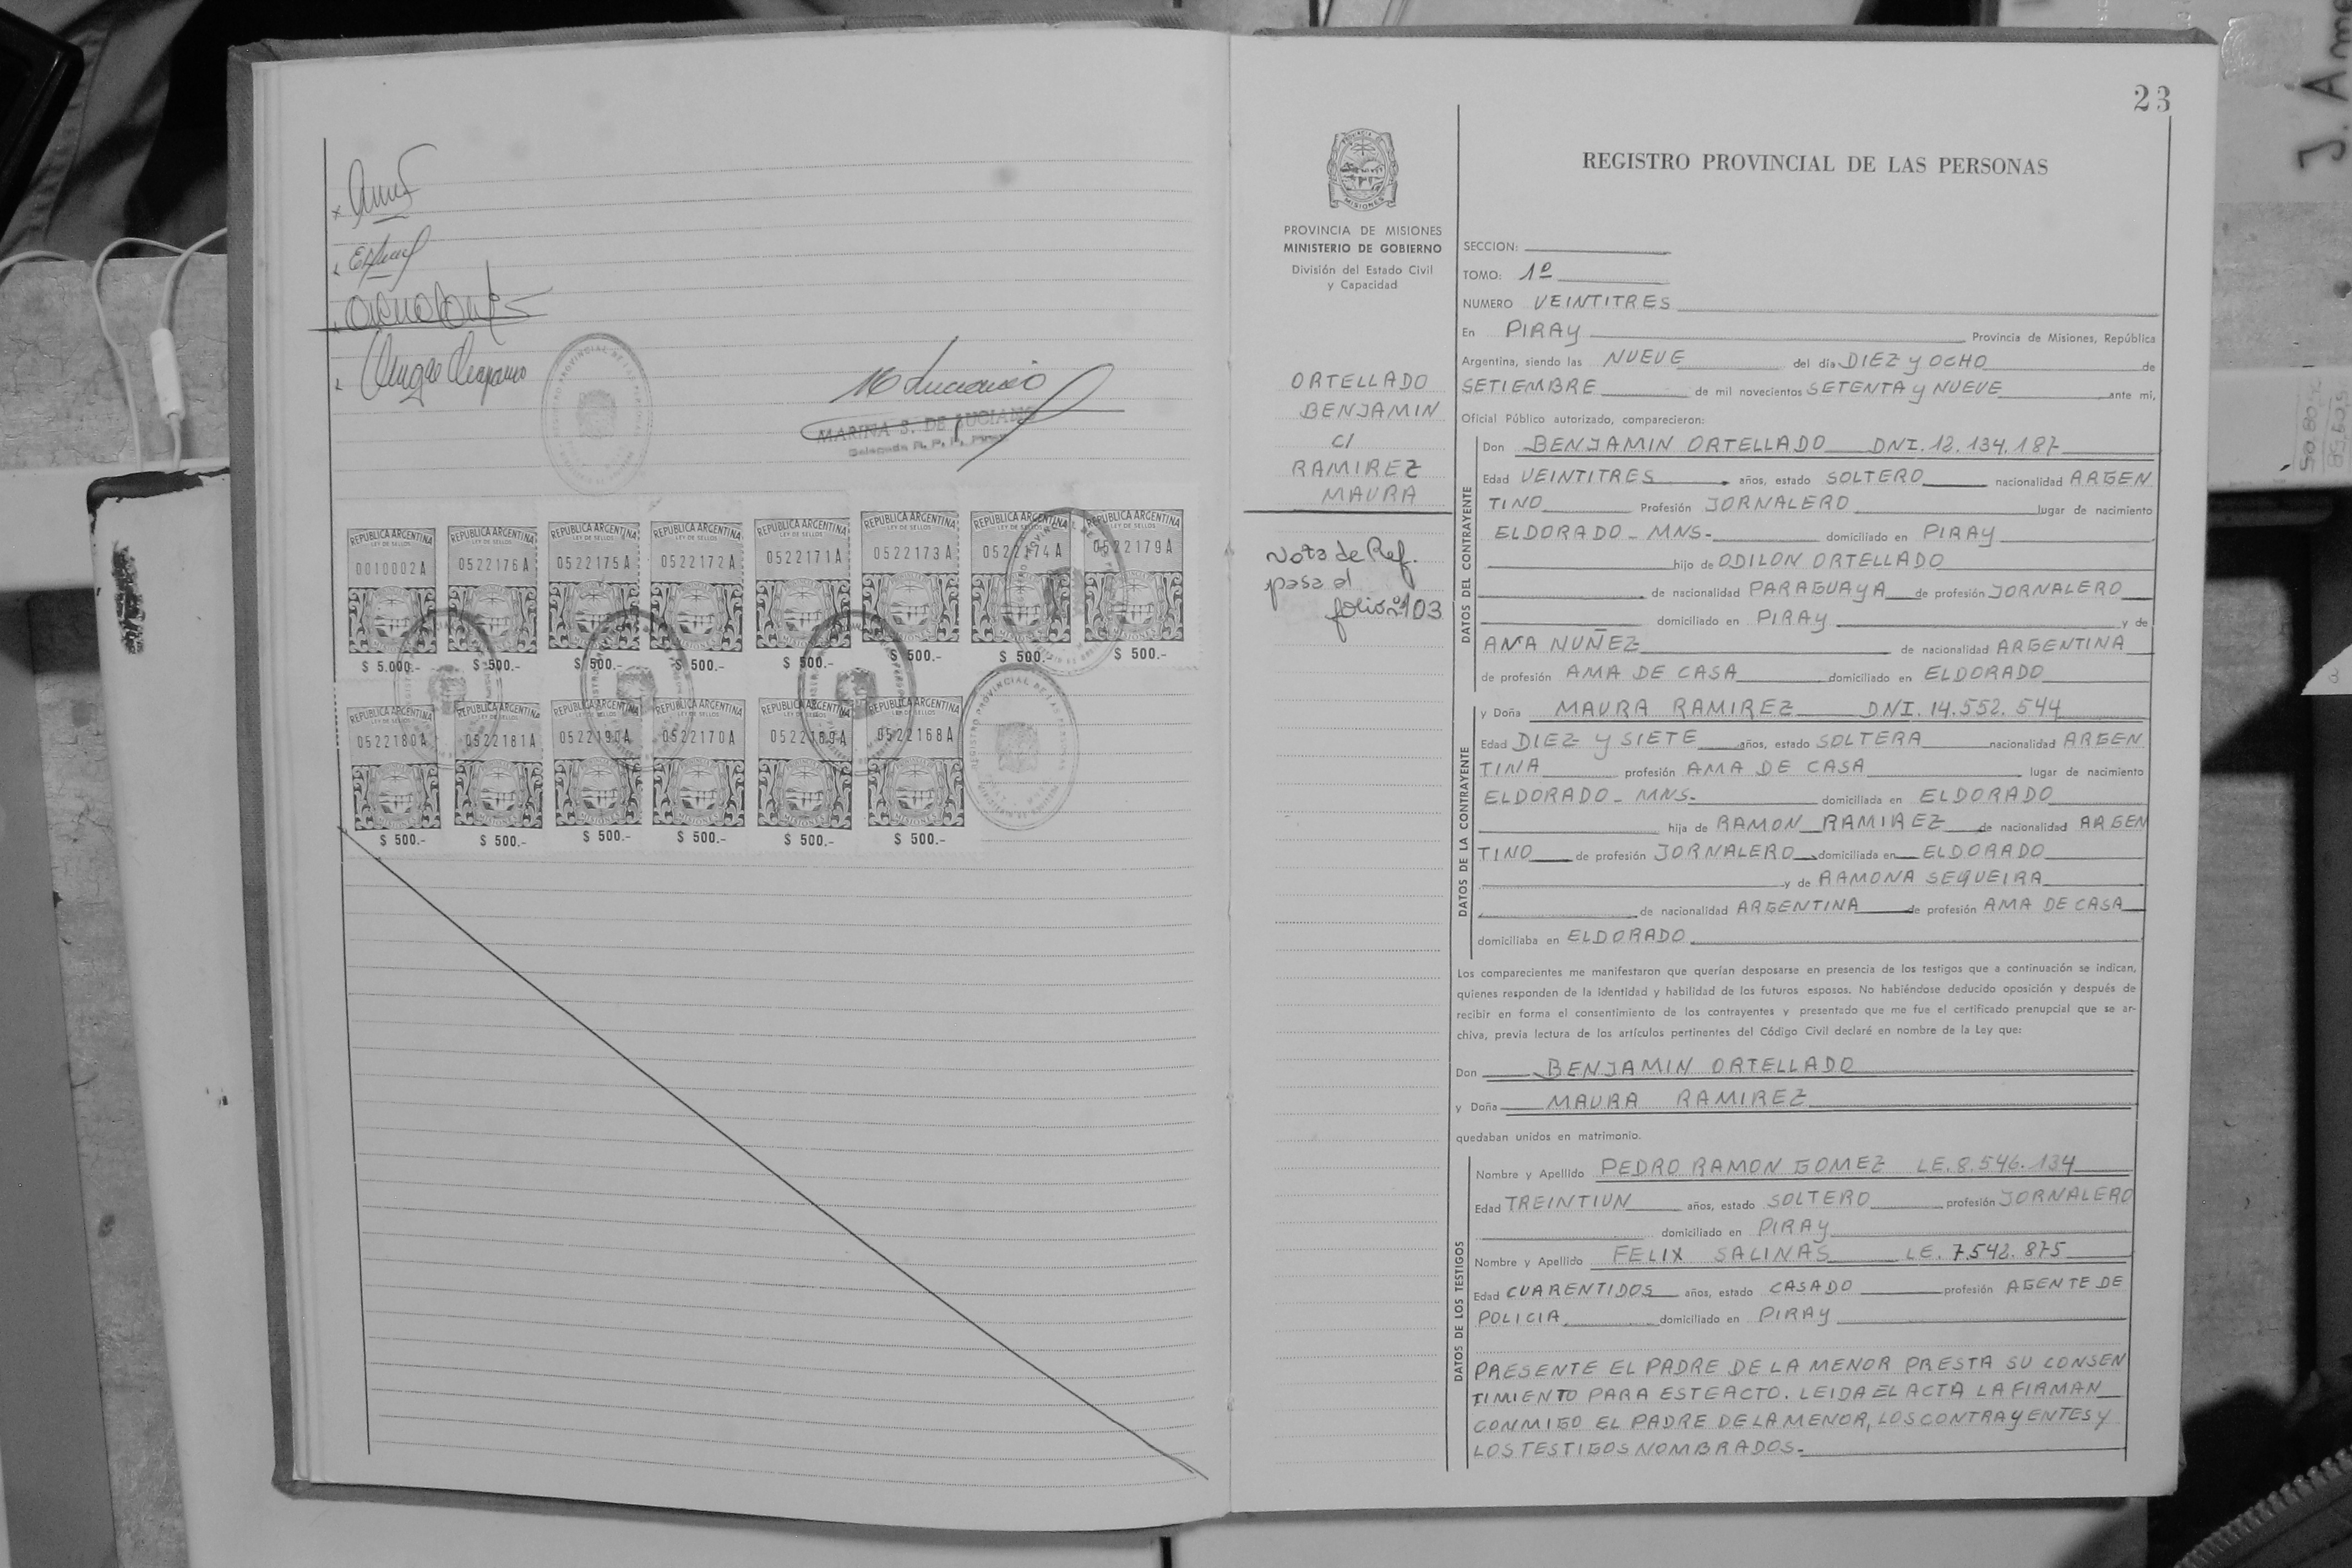 MARINA S. DE LUCIANO
Delegada R. P. P. Piray
REPUBLICA ARGENTINA REPUBLICA ARGENTINA REPUBLICA ARGENTINA REPUBLICA ARGENTINA REPUBLICA ARGENTINA REPUBLICA ARGENTINA REPUBLICA ARGENTINA REPUBLICA ARGENTINA
LEY DE SELLOS LEY DE SELLOS LEY DE SELLOS LEY DE SELLOS LEY DE SELLOS LEY DE SELLOS LEY DE SELLOS LEY DE SELLOS
0010002A 0522176A 0522175A 0522172A 0522171A 0522173A 0522174A 0522179A
$ 5.000.- $ 500.- $ 500.- $ 500.- $ 500.- $ 500.- $ 500.- $ 500.-
REPUBLICA ARGENTINA REPUBLICA ARGENTINA REPUBLICA ARGENTINA REPUBLICA ARGENTINA REPUBLICA ARGENTINA REPUBLICA ARGENTINA
LEY DE SELLOS LEY DE SELLOS LEY DE SELLOS LEY DE SELLOS LEY DE SELLOS LEY DE SELLOS
0522180A 0522181A 0522190A 0522170A 0522169A 0522168A
MISIONES MISIONES MISIONES MISIONES MISIONES MISIONES
$ 500.- $ 500.- $ 500.- $ 500.- $ 500.- $ 500.-
REGISTRO PROVINCIAL DE LAS PERSONAS
23
PROVINCIA DE MISIONES
MINISTERIO DE GOBIERNO
División del Estado Civil
y Capacidad
ORTELLADO
BENJAMIN
C/
RAMIREZ
MAURA
Nota de Ref.
pasa al
folio nº 103
REGISTRO PROVINCIAL DE LAS PERSONAS
SECCION:
TOMO: 1º
NUMERO VEINTITRES
En PIRAY Provincia de Misiones, República
Argentina, siendo las NUEVE del día DIEZ Y OCHO de
SETIEMBRE de mil novecientos SETENTA Y NUEVE ante mí,
Oficial Público autorizado, comparecieron:
DATOS DEL CONTRAYENTE
Don BENJAMIN ORTELLADO DNI. 12.134.187
Edad VEINTITRES años, estado SOLTERO nacionalidad ARGEN
TINO Profesión JORNALERO lugar de nacimiento
ELDORADO - MNS- domiciliado en PIRAY
hijo de ODILON ORTELLADO
de nacionalidad PARAGUAYA de profesión JORNALERO
domiciliado en PIRAY y de
ANA NUÑEZ de nacionalidad ARGENTINA
de profesión AMA DE CASA domiciliado en ELDORADO
DATOS DE LA CONTRAYENTE
y Doña MAURA RAMIREZ DNI. 14.552.544
Edad DIEZ Y SIETE años, estado SOLTERA nacionalidad ARGEN
TINA profesión AMA DE CASA lugar de nacimiento
ELDORADO - MNS- domiciliada en ELDORADO
hija de RAMON RAMIREZ de nacionalidad ARGEN
TINO de profesión JORNALERO domiciliada en ELDORADO
y de RAMONA SEQUEIRA
de nacionalidad ARGENTINA de profesión AMA DE CASA
domiciliaba en ELDORADO
Los comparecientes me manifestaron que querían desposarse en presencia de los testigos que a continuación se indican,
quienes responden de la identidad y habilidad de los futuros esposos. No habiéndose deducido oposición y después de
recibir en forma el consentimiento de los contrayentes y presentado que me fue el certificado prenupcial que se ar-
chiva, previa lectura de los artículos pertinentes del Código Civil declaré en nombre de la Ley que:
Don BENJAMIN ORTELLADO
y Doña MAURA RAMIREZ
quedaban unidos en matrimonio.
DATOS DE LOS TESTIGOS
Nombre y Apellido PEDRO RAMON GOMEZ LE. 8.546.134
Edad TREINTIUN años, estado SOLTERO profesión JORNALERO
domiciliado en PIRAY
Nombre y Apellido FELIX SALINAS LE. 7.542.875
Edad CUARENTIDOS años, estado CASADO profesión AGENTE DE
POLICIA domiciliado en PIRAY
PRESENTE EL PADRE DE LA MENOR PRESTA SU CONSEN
TIMIENTO PARA ESTE ACTO. LEIDA EL ACTA LA FIRMAN
CONMIGO EL PADRE DE LA MENOR, LOS CONTRAYENTES Y
LOS TESTIGOS NOMBRADOS.